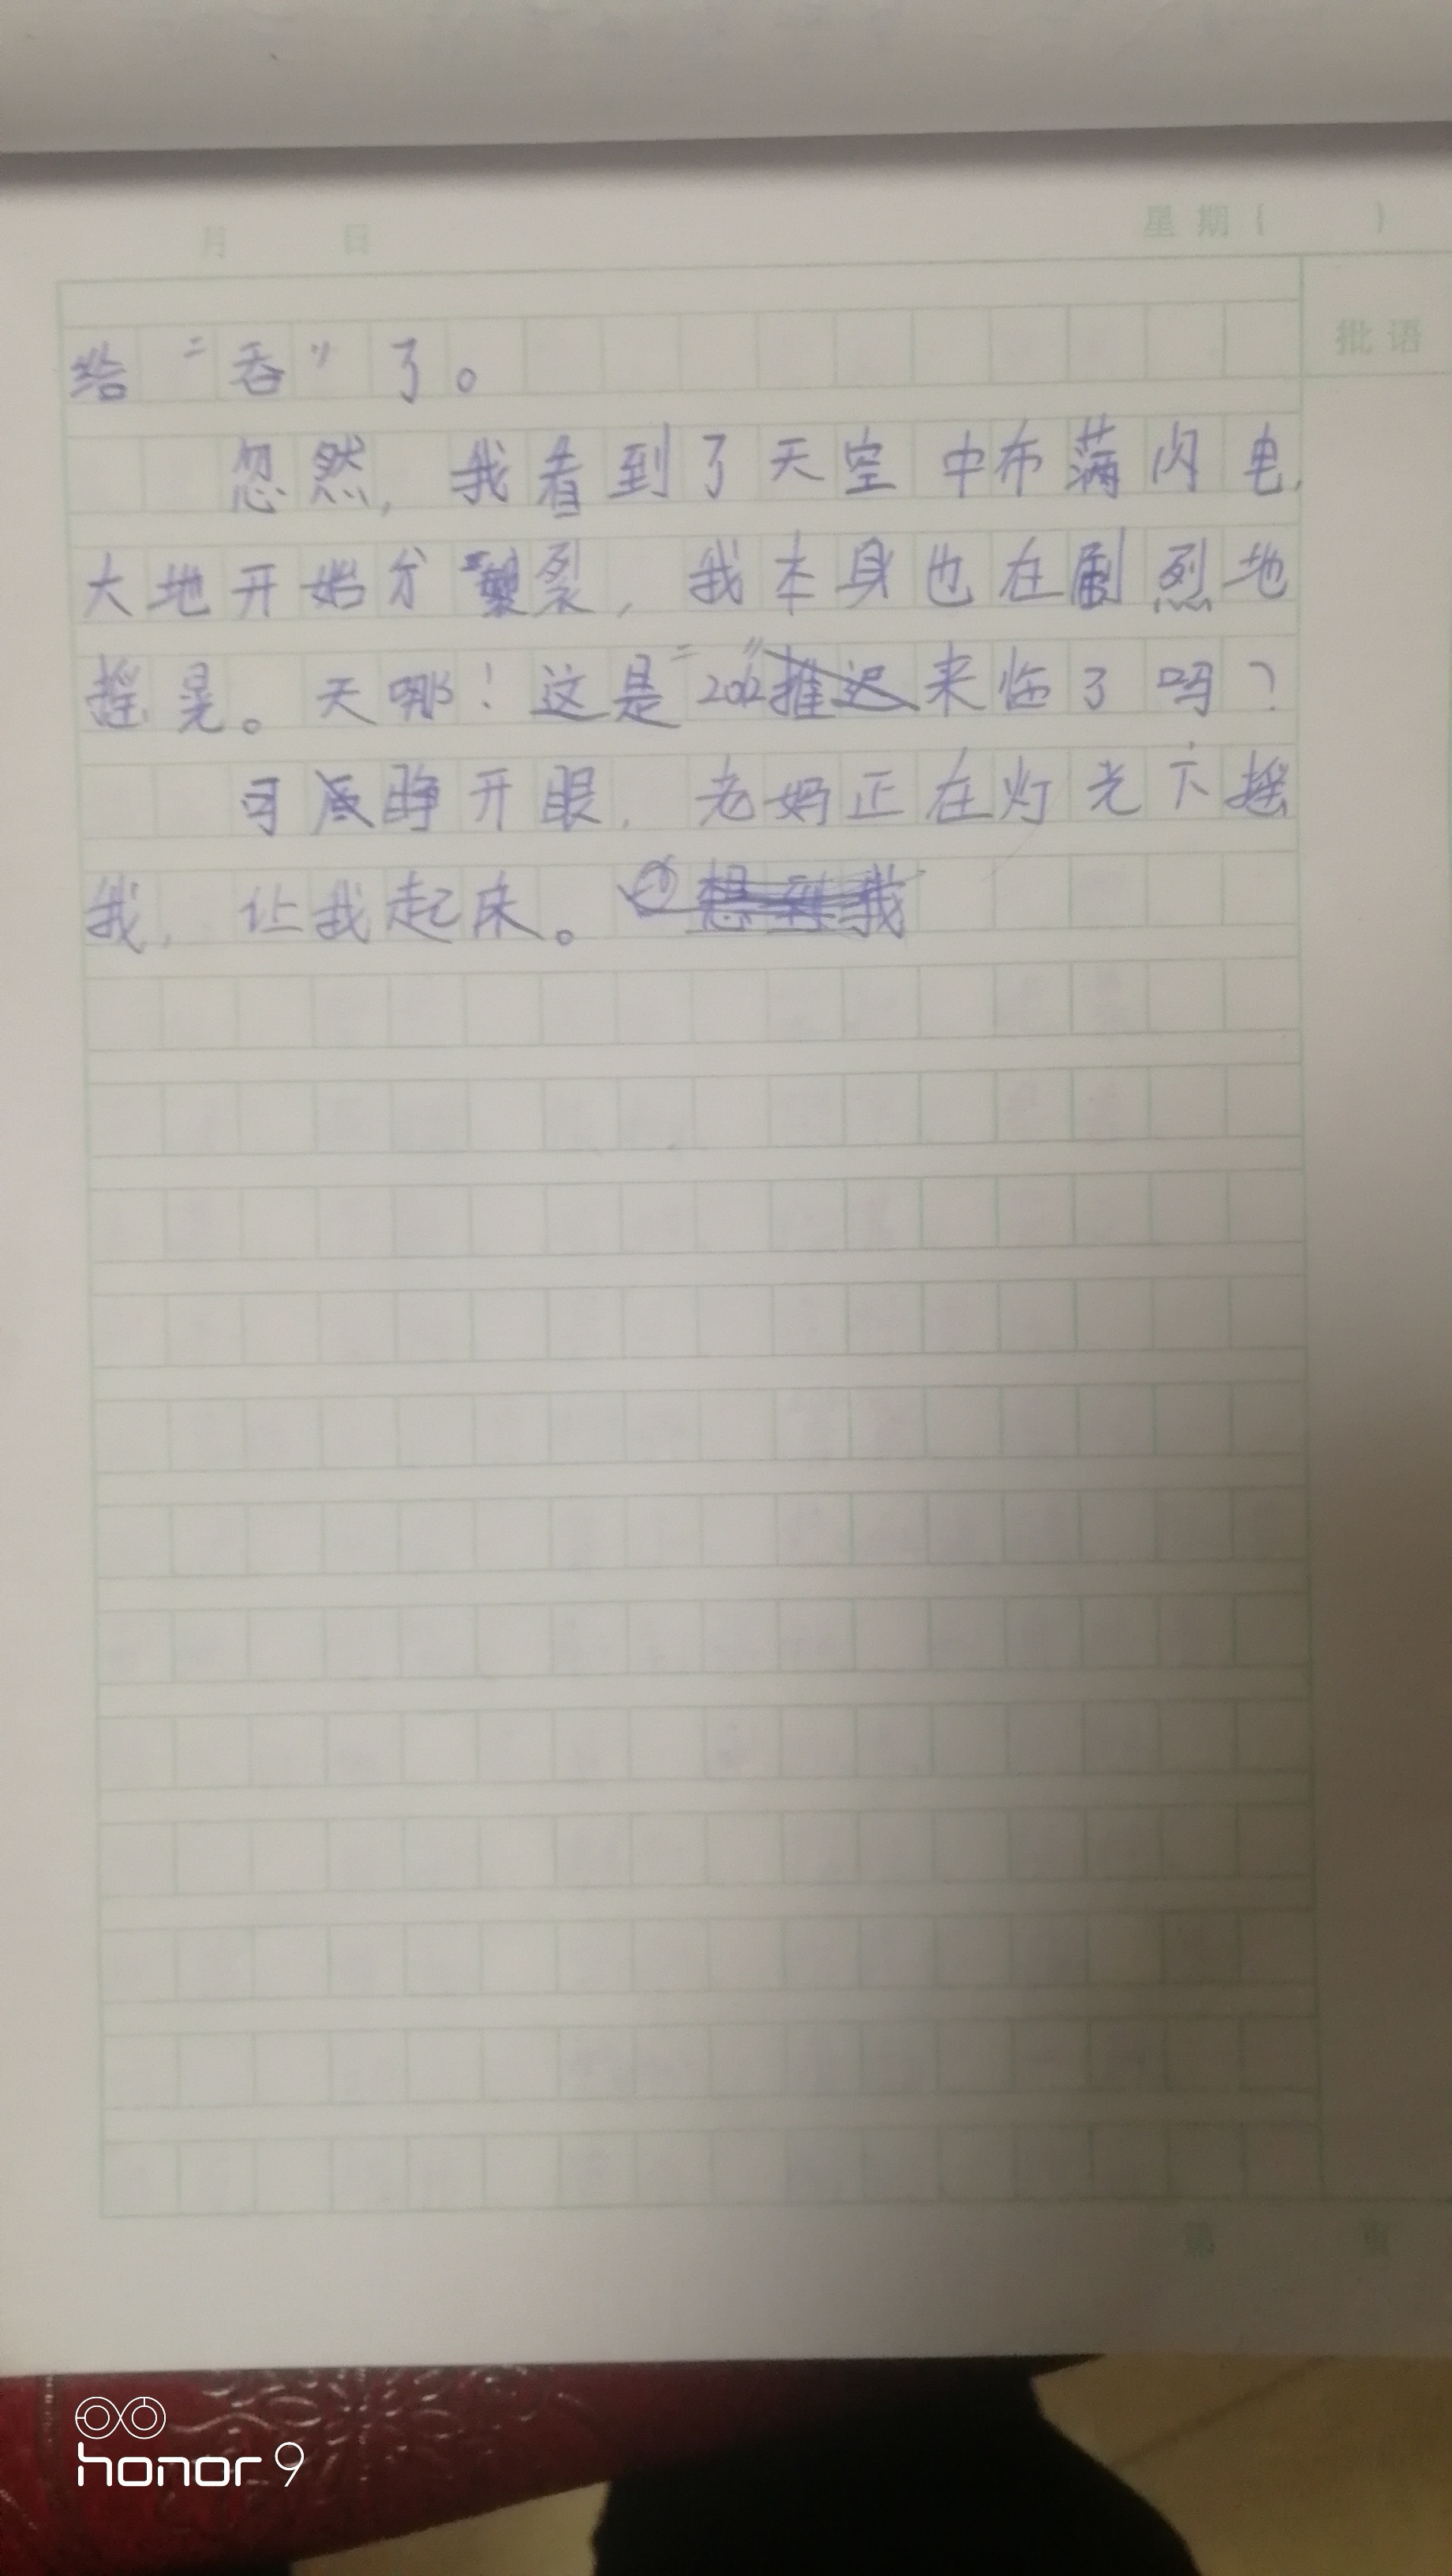 月 日 星期( )
批语
给“吞”了。
忽然,我看到了天空中布满闪电,
大地开始分裂,我本身也在剧烈地
摇晃。天哪!这是“2012”来临了吗?
睁开眼,老妈正在灯光下摇
我,让我起床。
第 页
honor 9